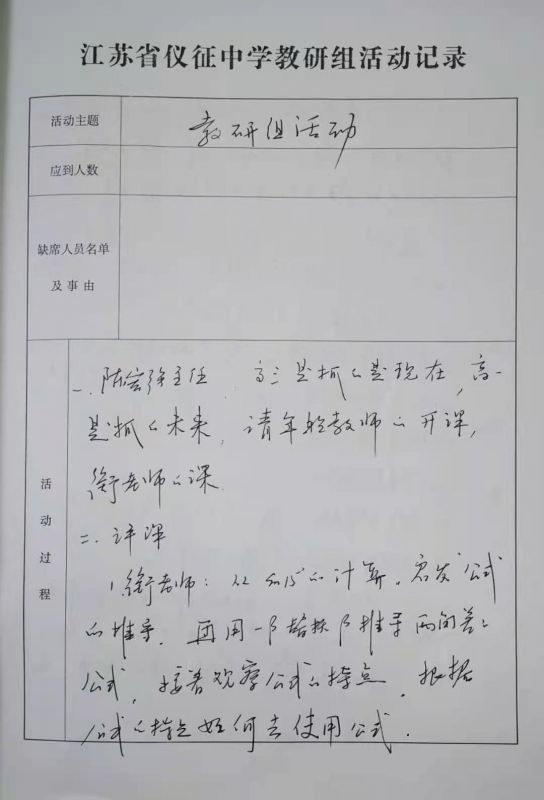 江苏省仪征中学教研组活动记录
活动主题
教研组活动
应到人数
缺席人员名单
及事由
活动过程
一、陈宏强主任 高三是抓的是现在,高一
是抓的未来,请年轻教师的开课,
衡老师的课
二、评课
1、衡老师:从 15°的计算,启发公式
的推导,再用-β替换β推导两角差的
公式,接着观察公式的特点,根据
公式的特点如何去使用公式.